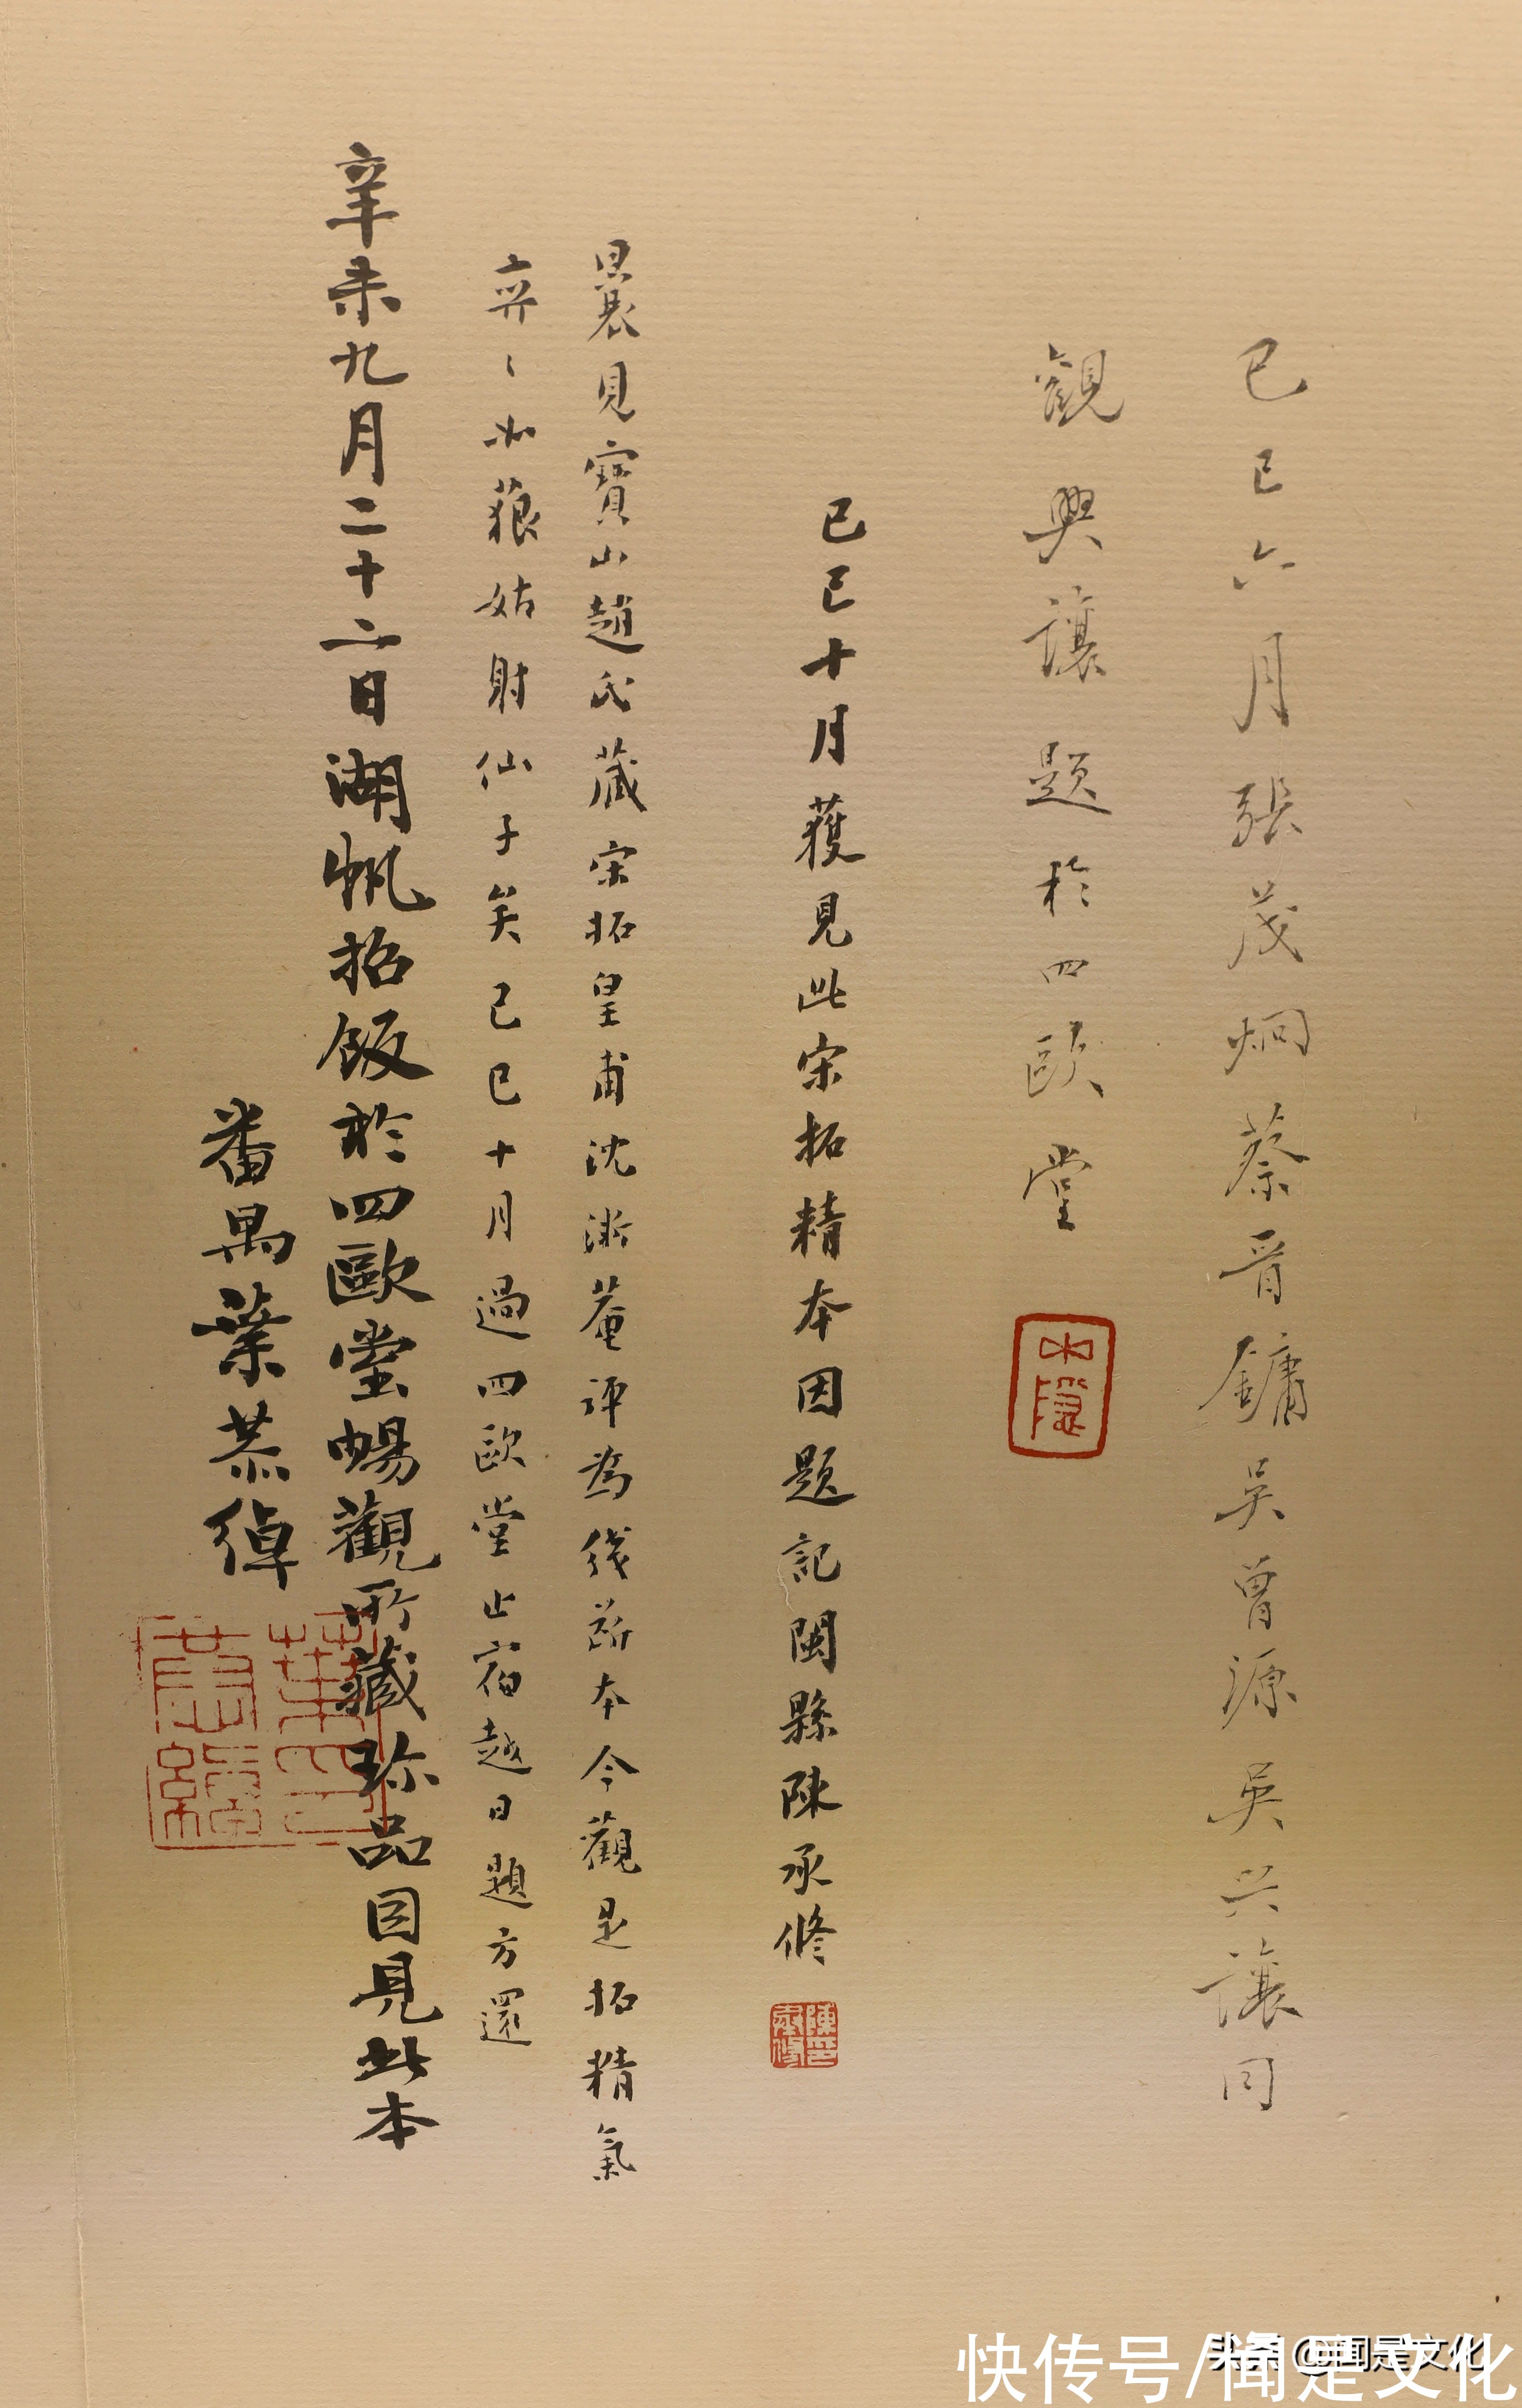 己巳六月張茂炯蔡晋鏞吴曾源吴兴讓同
觀興讓題於四歐堂
己巳十月獲見此宋拓精本因題記閩縣陳承修
陳承修印
曩見寶山趙氏藏宋拓皇甫沈濟菴評為綫斷本今觀是拓精氣
奕〻如藐姑射仙子矣己巳十月過四歐堂止宿越日題方還
辛未九月二十二日湖帆招飯於四歐堂暢觀所藏珎品因見此本
番禺葉恭綽
快传号/闻是文化
头条 @闻是文化